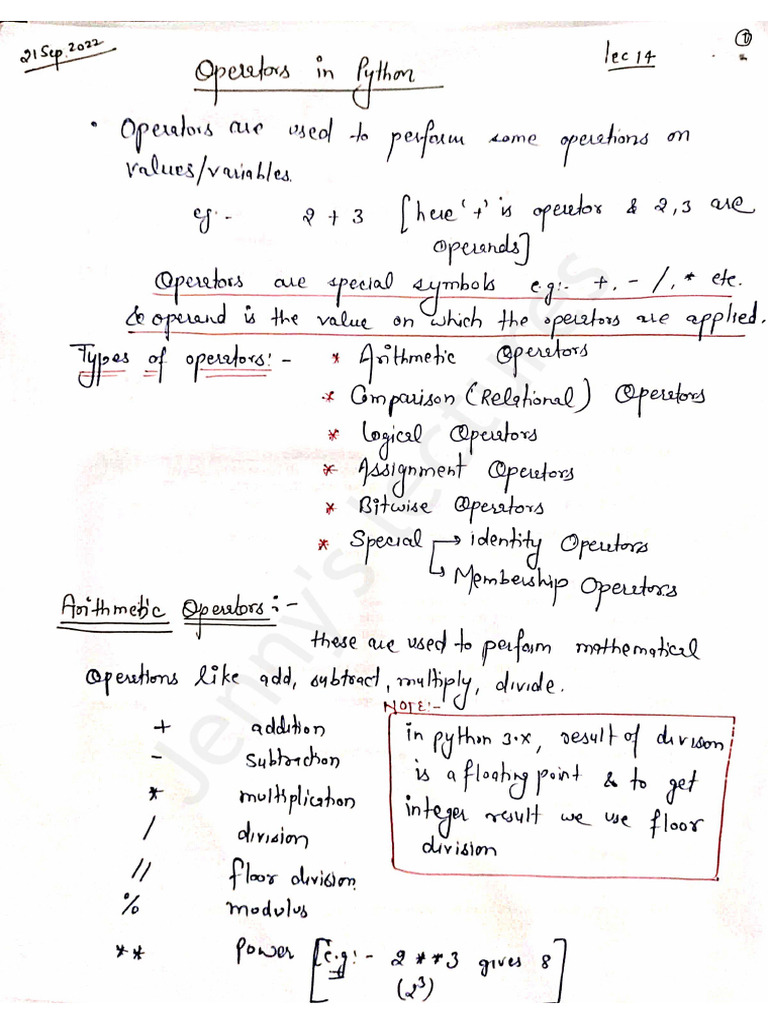 21 Sep. 2022
Operators in Python
lec 14
1
• Operators are used to perform some operations on
values/variables.
eg:- 2 + 3 [here '+' is operator & 2,3 are
operands]
Operators are special symbols e.g:- +, - /, * etc.
& operand is the value on which the operators are applied.
Types of operators:- * Arithmetic Operators
* Comparison (Relational) Operators
* Logical Operators
* Assignment Operators
* Bitwise Operators
* Special → identity Operators
↳ Membership Operators
Arithmetic Operators:-
these are used to perform mathematical
Operations like add, subtract, multiply, divide.
NOTE:-
in python 3.x, result of divison
is a floating point & to get
integer result we use floor
division
+ addition
- subtraction
* multiplication
/ division
// floor division
% modulus
** power [e.g:- 2 ** 3 gives 8]
(2³)
Jenny's Lectures